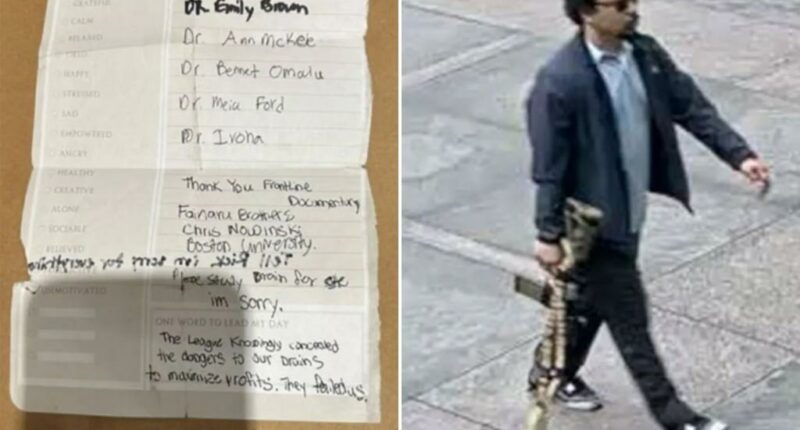 GRATEFUL
CALM
RELAXED
TIRED
HAPPY
STRESSED
SAD
EMPOWERED
ANGRY
HEALTHY
CREATIVE
ALONE
SOCIABLE
RELIEVED
UNMOTIVATED
Dr. Emily Brown
Dr. Ann McKee
Dr. Bennet Omalu
Dr. Meia Ford
Dr. Ivona
Thank You Frontline
Documentary
Fainaru Brothers
Chris Nowinski
Boston University.
Tell Rick im sorry for everything
Please study Brain for cte
im sorry.
ONE WORD TO LEAD MY DAY
The League Knowingly concealed
the dangers to our brains
to maximize profits. They failed us.